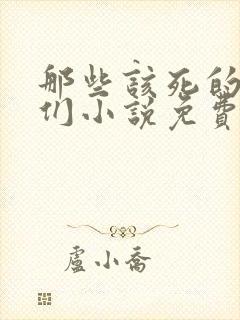 那些該死的
们小說免費
盧小喬